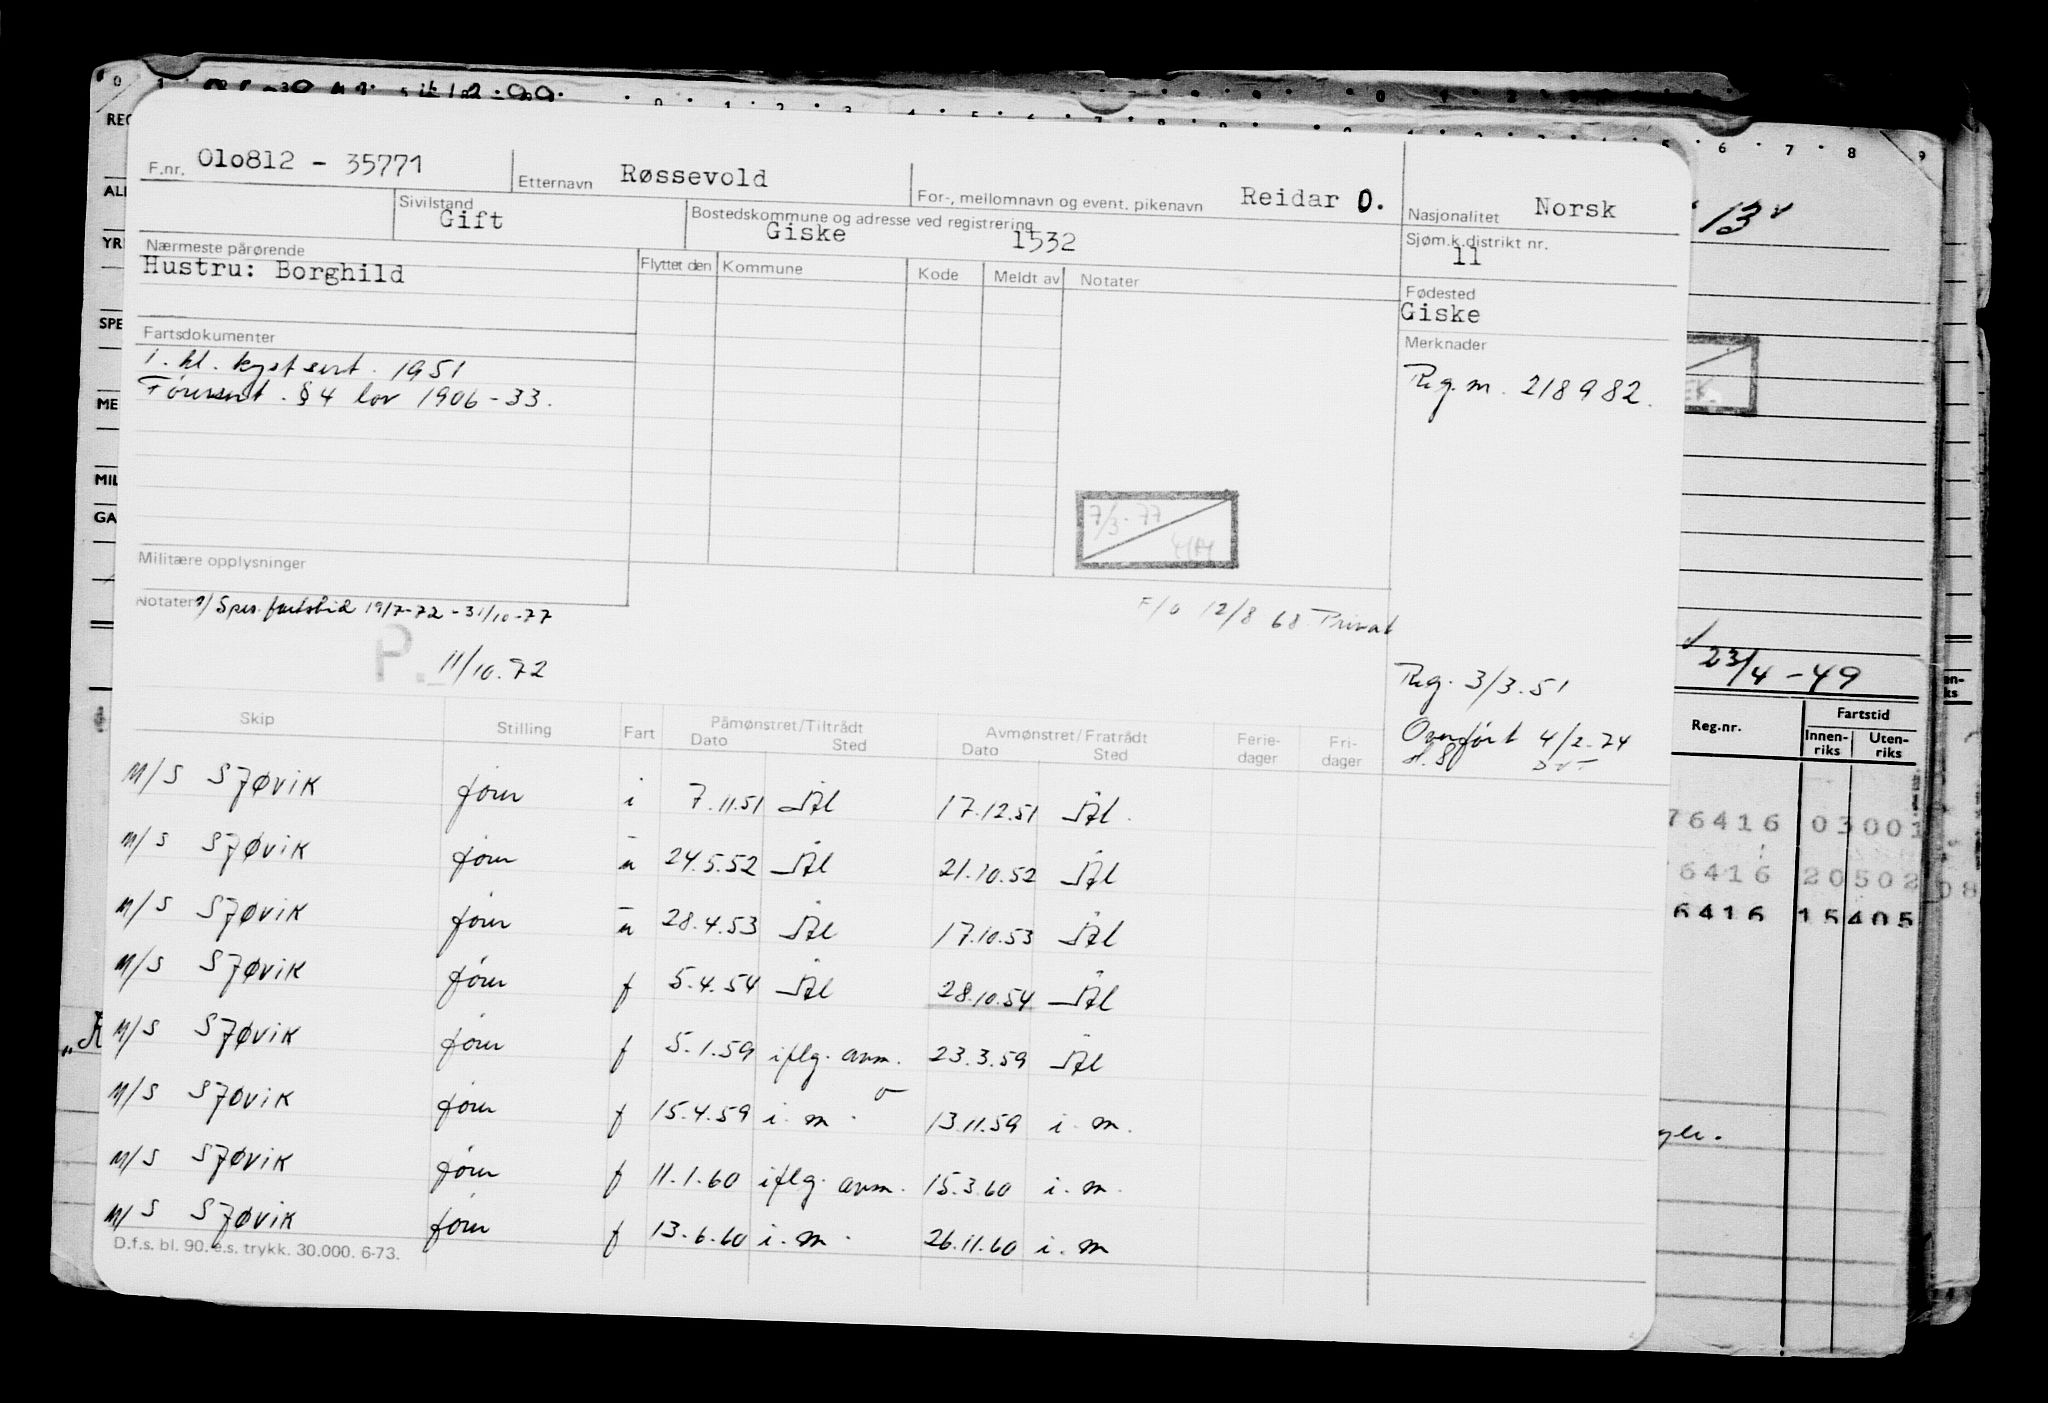 F.nr. 010812 - 35771 Etternavn Røssevold For-, mellomnavn og event. pikenavn Reidar O. Nasjonalitet Norsk
Sivilstand Gift Bostedskommune og adresse ved registrering Giske 1532 Sjøm.k.distrikt nr. 11
Nærmeste pårørende Flyttet den Kommune Kode Meldt av Notater Fødested
Hustru: Borghild Giske
Fartsdokumenter Merknader
1. kl. kyst sert. 1951 Reg.nr. 218982.
Førersert. §4 lov 1906-33.
7/3-77
Militære opplysninger
Notater 1/ Spes. fartstid 19/7-72 - 31/10-77 F/o 12/8 68 Privat
P. 11/10.72 Reg. 3/3.51
Overført 4/2-74
Skip Stilling Fart Påmønstret/Tiltrådt Dato Sted Avmønstret/Fratrådt Dato Sted Ferie-dager Fri-dager
M/S SJØVIK fører i 7.11.51 Ål 17.12.51 Ål.
M/S SJØVIK fører u 24.5.52 Ål 21.10.52 Ål
M/S SJØVIK fører u 28.4.53 Ål 17.10.53 Ål
M/S SJØVIK fører f 5.4.54 Ål 28.10.54 Ål
M/S SJØVIK fører f 5.1.59 iflg. avm. 23.3.59 Ål
M/S SJØVIK fører f 15.4.59 i. m. 13.11.59 i. m.
M/S SJØVIK fører f 11.1.60 iflg. avm. 15.3.60 i. m.
M/S SJØVIK fører f 13.6.60 i. m. 26.11.60 i. m
D.f.s. bl. 90. e.s. trykk. 30.000. 6-73.
REG
SPE
ME
MIL
GA
13
23/4-49
Reg.nr. Fartstid
Innen-riks Uten-riks
76416 03001
6416 20502 08
6416 15405